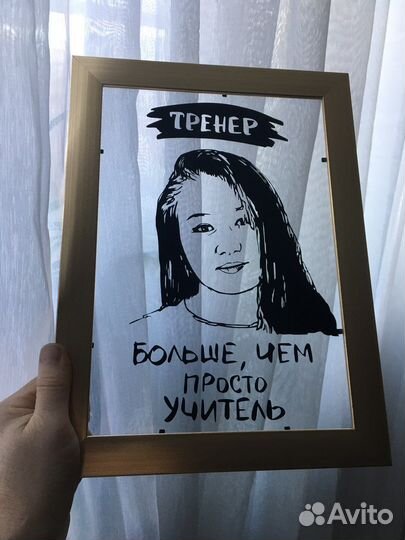 ТРЕНЕР
БОЛЬШЕ, ЧЕМ
ПРОСТО
УЧИТЕЛЬ
Avito